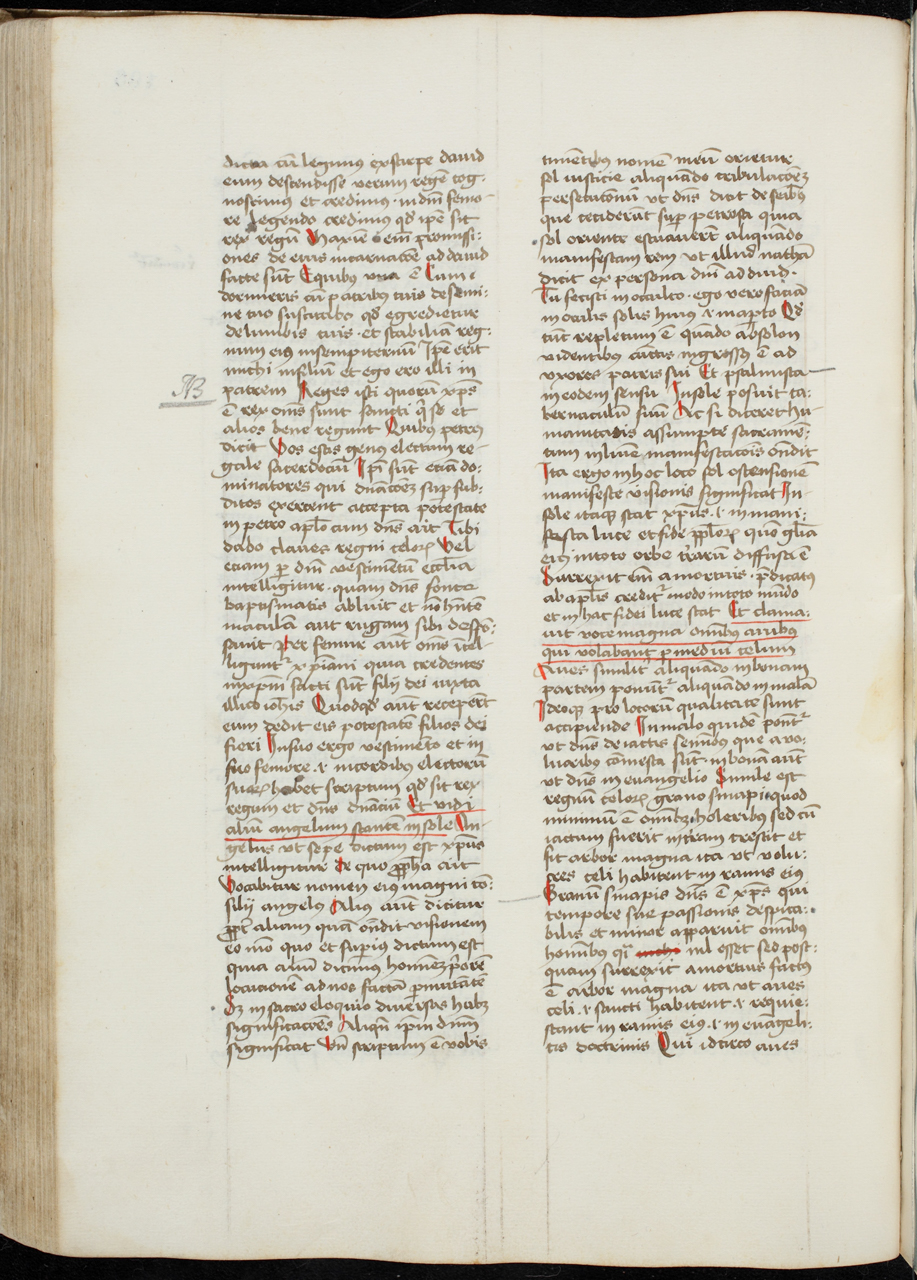 dicta cū legimus ex stirpe dauid
eum descendisse verum regē cog-
noscimus et credimus · in dm̄ femo-
re legendo credimus qd̛ ip̄e sit
rex regū Maxīe eīm promissi-
ones de eius incarnacōe ad dauid
facte sūt Equibus vna ē Cum
dormieris cū patribus tuis de semi-
ne tuo suscitabo qd̛ egredietur
de lumbis tuis · et stabiliā reg-
num eius in sempiternū Ip̄e erit
michi in filiū et ego ero illi in
NB
patrem Reges isti quorū xp̄s
ē rex om̄s sunt sancti q̄ se et
alios bene regunt Quibus petrus
dicit Vos estis genus electum re-
gale sacerdociū Ip̄i sūt eciā do-
minatores qui dn̄acōez sup̲ sub-
ditos exercent accepta potestate
in petro ap̄lo cum dn̄s ait Tibi
dabo claues regni celoꝝ Vel
eciam per dm̄ vestimentū eccl̄ia
intelligitur · quam dn̄s fonte
baptismatis abluit et nō hn̄tem
maculam aut rugam sibi despō-
sauit Per femur aut om̄sītel-
ligunt̛ xp̄iani quia credentes
in xp̄m̄ facti sūt filij dei iuxta
illud ioh̄is Quodqd̛ aūt receperūt
eum dedit eis potestatē filios dei
fieri In suo ergo vestimēto et in
suo femore · i · in cordibus electorū
suaꝝ habet scriptum qd̛ sit rex
regum et dn̄s dn̄aciū Et vidi
aliū angelum stantē in sole An-
gelus vt sepe dictum est xp̄us
intelligitur De quo pp̄ha ait
Vocabitur nomen eius magni cō-
silij angelus Alius aūt dicitur
pp̄t aliam quā on̄dit visionem
eo mō quo et superius dictum est
quia aliū dicimus hominēz p̄orē
locucionē ad nos factā p̲mutatē
Sz in sacro eloquio diuersas habz
significacōes Aliqn̄ ip̄m dn̄m
significat Vn̄ scriptum ē vobis
timentibus nomē meū orietur
sol iusticie aliquādo tribulacōez
persecutonū vt dn̄s dicit de seībꝰ
que ceciderūt sup̲ petrosa quia
sol oriente estuauerūt aliquādo
manifestam rem vt illud nathā
dicit ex persona dn̄i ad dauid ·
Tu fecisti in occulto · ego vero faciā
in oculis solis huius · i · in ap̲to Qd̛
tūc repletum ē quādo absolon
videntibus cūctis ingressus ē ad
vxores patris sui Et psalmista
in eodem sensu In sole posuit ta-
bernaculū suū Ac si diceret hu-
manitatis assumpte sacramē-
tum in lumē manifestacōis on̄dit
Ita ergo in hoc loco sol ostensionē
manifeste visionis significat In
sole itaqꝫ stat xp̄us · i · in mani-
festa luce et fide pp̄loꝝ quō gl̄ia
eius in toto orbe tr̄arū diffusa ē
Surrexit eīm a mortuis · p̄dicatus
ab aplīs credit̛ modo in toto mūdo
et in hac fidei luce stat Et clama-
uit voce magna om̄ibus auibus
qui volabant p̲ mediū celum
Aues similit̛ aliquādo in bonam
partem ponūt̛ aliquādo in malā
Ideoqꝫ pro locorū qualitate sunt
accipiende In malo quidē ponūt̛
vt dn̄s de iactis seminibus que a vo-
lucribus comesta sūt · in bonam aūt
vt dn̄s in euangelio Simile est
regnū celoꝝ grano sinapis quod
minimū ē om̄ibꝫ holeribus sed cū
iactum fuerit in tr̄am crescit et
fit arbor magna ita vt volu-
cres celi habitent in ramis eius
Granū sinapis dn̄s ē xp̄s qui
tempore sue passionis despica-
bilis et minor apparuit om̄ibus
hom̄ibus nil esset sed post-
quam surrexit a mortuis factus
ē arbor magna ita vt aues
celi · i · sancti habitent · i · requie-
scant in ramis eius · i · in euāgeli-
cis doctrinis Qui idcirco aues